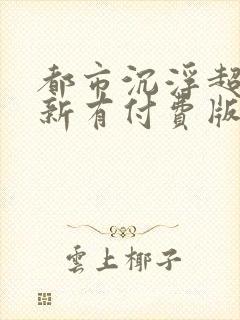 都市沉浮超
新有付費版
雲上椰子